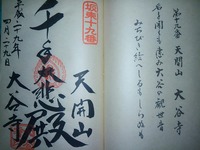 第十九番 天開山 大谷寺
名を聞くも恵み大谷の観世音
みちびき給へしるもしらぬも
坂東十九番
天開山
千手大悲殿
平成二十九年
四月二十九日
大谷寺